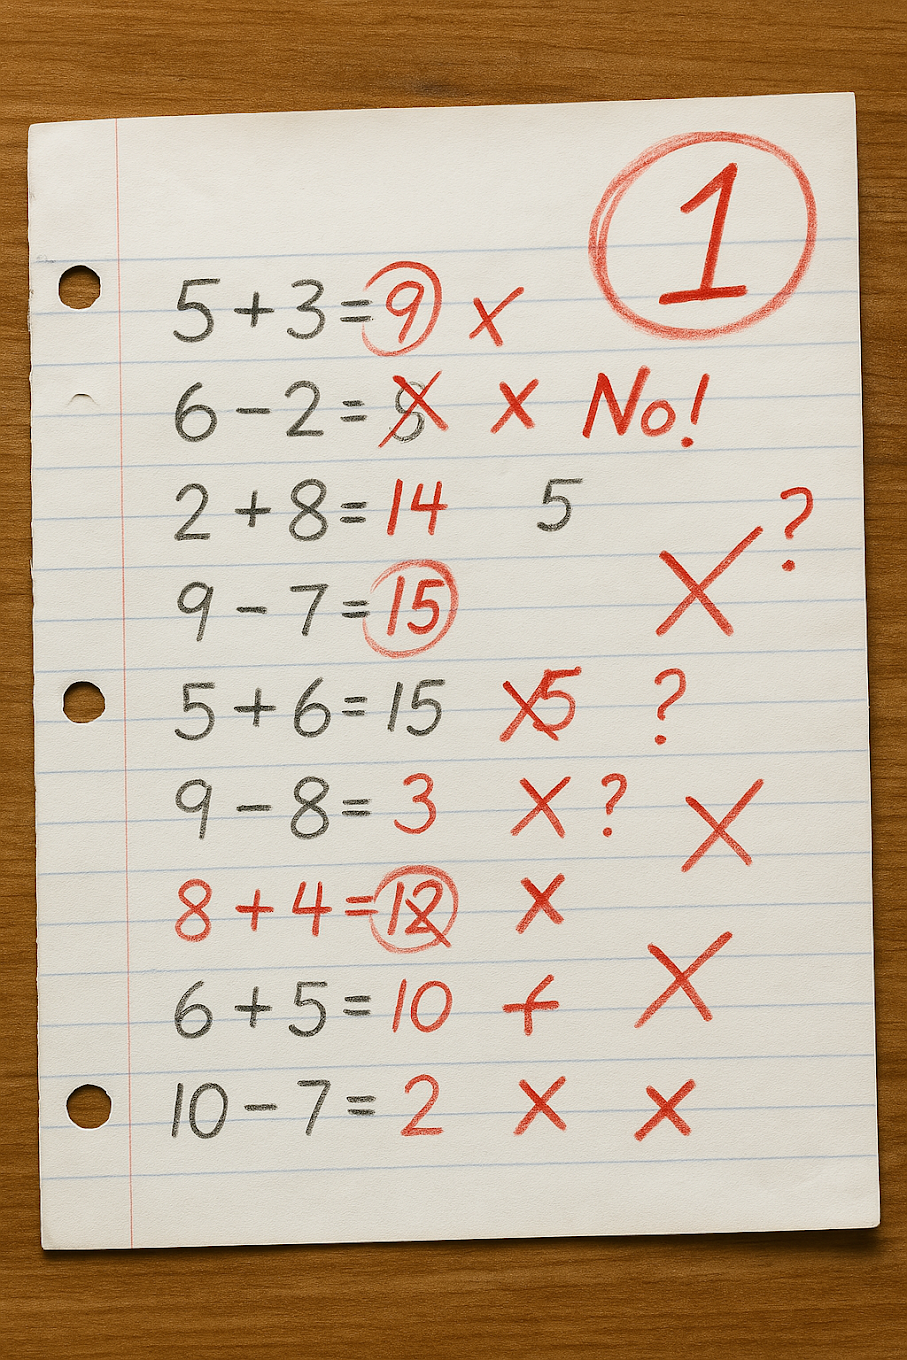 1
5 + 3 = 9 x
6 - 2 = 8 x No!
2 + 8 = 14 5 ?
9 - 7 = 15 X
5 + 6 = 15 X5 ?
9 - 8 = 3 X ? X
8 + 4 = 12 x
6 + 5 = 10 + X
10 - 7 = 2 X x